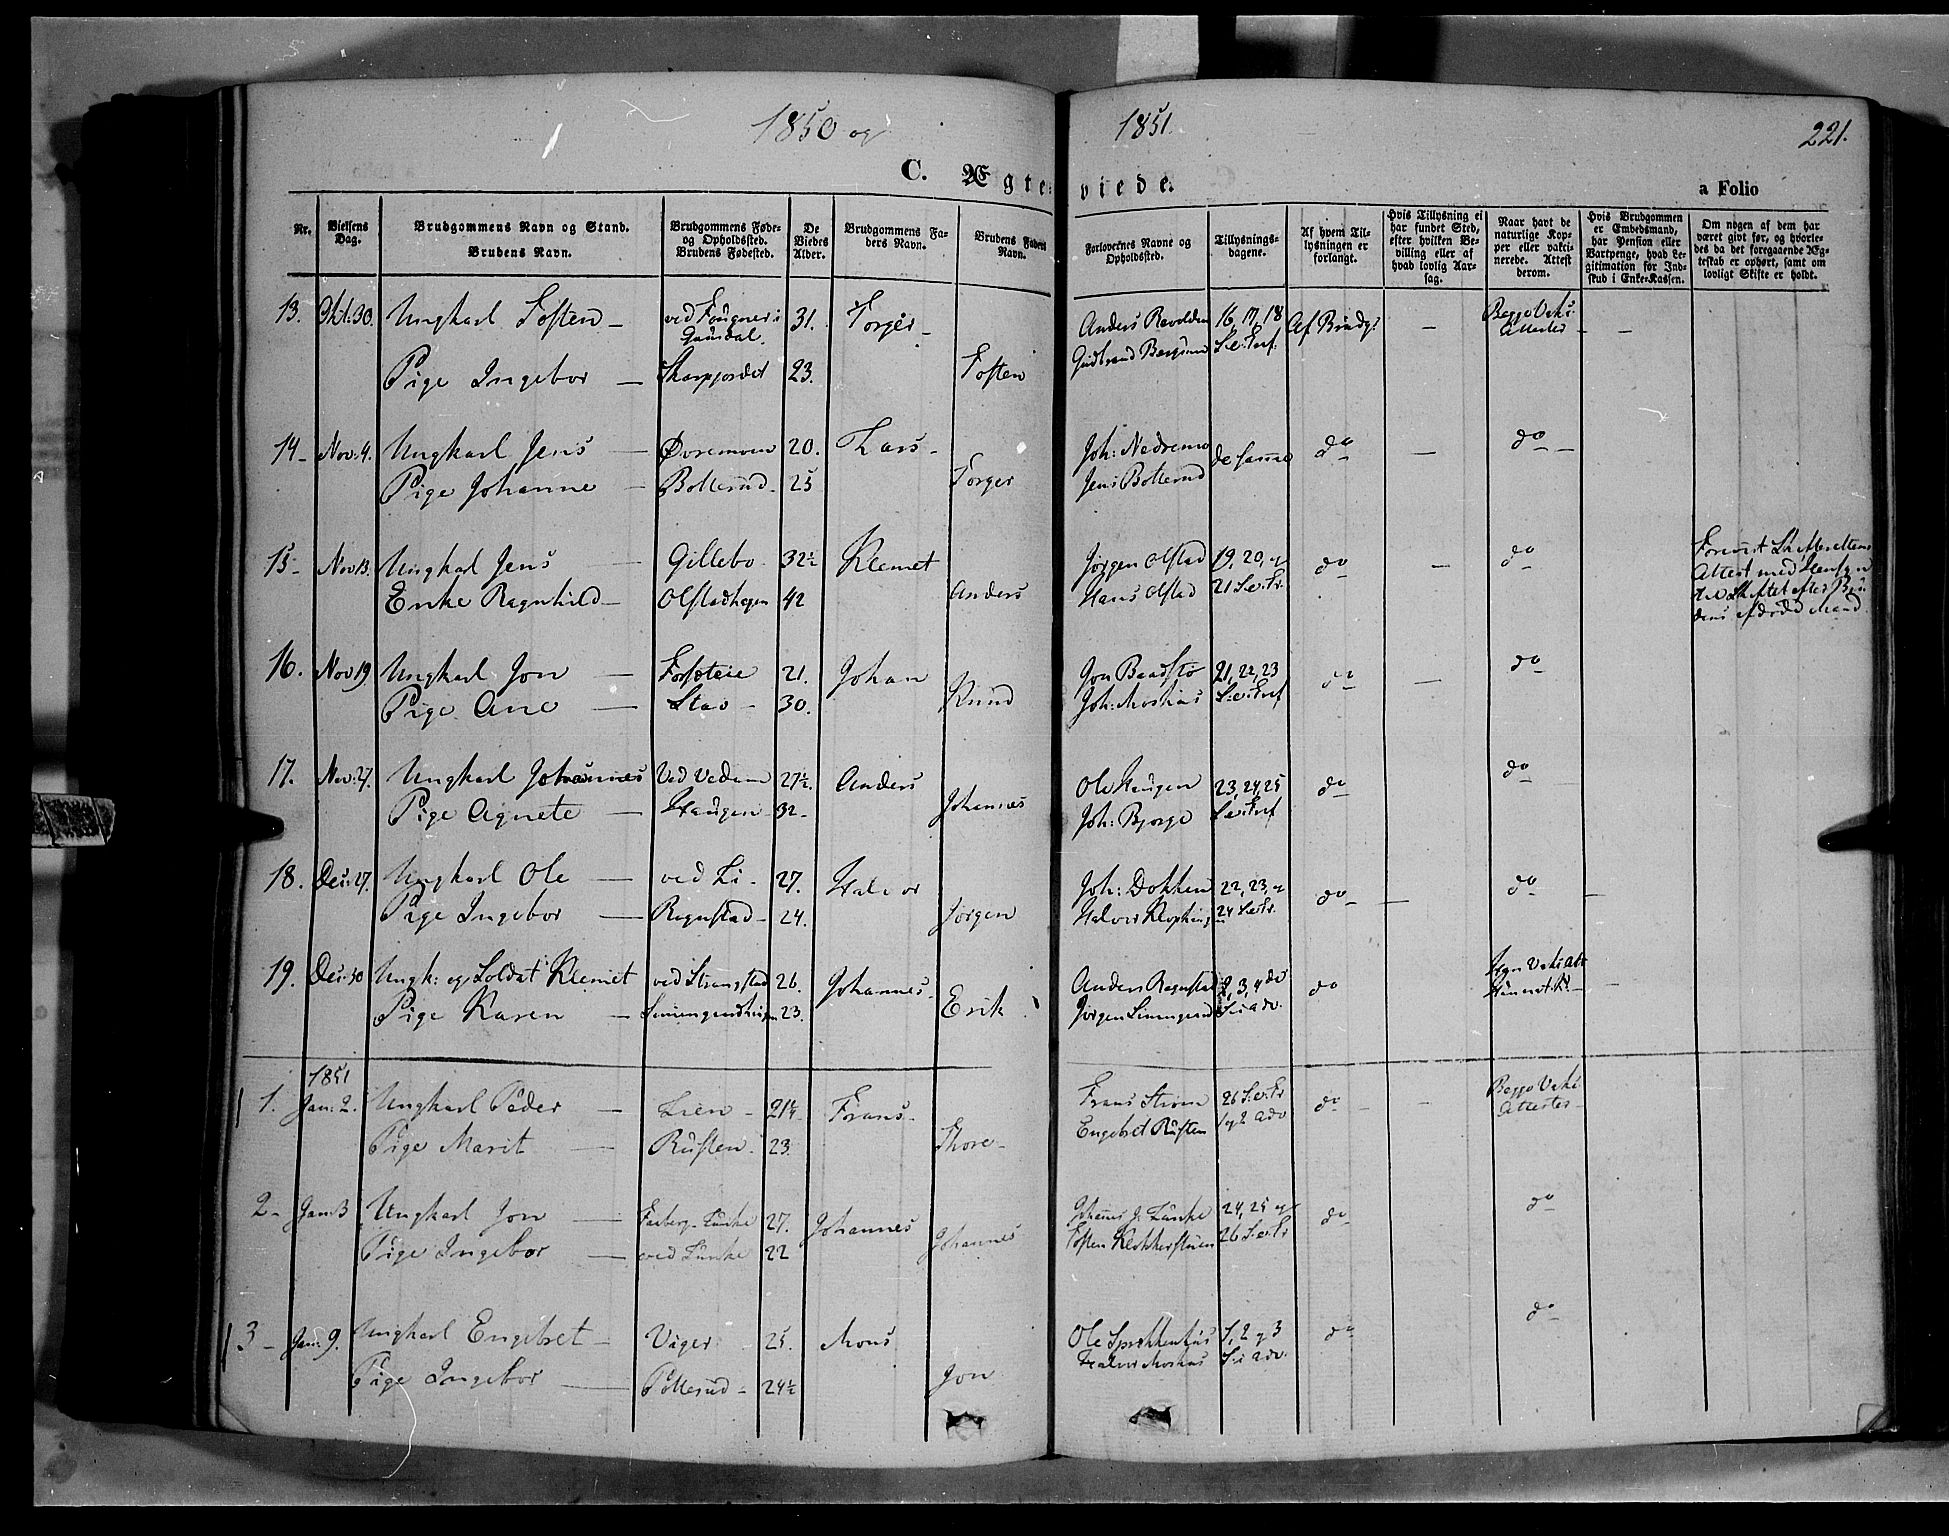 1850 og
1851.
221.
C. Ægte-
viede.
a Folio
Nr.
Vielsens Dag.
Brudgommens Navn og Stand.
Brudens Navn.
Brudgommens Føde- og Opholdssted.
Brudens Fødested.
De Viedes Alder.
Brudgommens Faders Navn.
Brudens Faders Navn.
Forlovernes Navne og Opholdssted.
Tillysnings-dagene.
Af hvem Tillysningen er forlangt.
Hvis Tillysning ei har fundet Sted, efter hvilken Bevilling eller af hvad lovlig Aarsag.
Naar havt de naturlige Kopper eller vaktinerede. Attest derom.
Hvis Brudgommen er Embedsmand, har Pension eller Vartpenge, hvad Legitimation for Indskud i Enke-Kassen.
Om nogen af dem har været gift før, og hvorledes da det foregaaende Ægteskab er ophørt, samt om lovligt Skifte er holdt.
13. Okt: 30. Ungkarl Tosten – ved Fougner i 31. Torger – Anders 16, 17, 18 Af Brudg: – Begge Vaks: –
Gausdal. Gudbrand S.e.Tref. Attester
Pige Ingebor – Skarpjordet 23. Tosten
14 – Nov: 4. Ungkarl Jens – Øvremoen 20. Lars – Joh: Nedremo de samme do – – do –
Pige Johanne – Botterud – 25 Torger Jens Botterud
15 – Nov 13. Ungkarl Jens – Gillebo – 32½ Klemet Jørgen Olstad 19, 20, og do – do
Enke Ragnhild – Olstadhagen 42 Anders Hans Olstad 21 S.e.Tr.
Attest med Hensyn
til Skiftet efter Bru
dens afdøde Mand.
16. Nov 19. Ungkarl Jon – 21. Johan Jon Baadstø 21, 22, 23 do – do
Pige Ane – Stav – 30. Knud Joh: Moshus S.e.Tref
17. Nov: 27. Ungkarl Johannes Ved Vedum 27½ Anders Ole Haugen 23, 24, 25 do do
Pige Agnete – Haugen – 32 – Johannes Joh: Bjørge S.e.Tref
18. Des: 27. Ungkarl Ole – ved Li – 27. Halvor Joh: Dokken 22, 23, og do – do –
Pige Ingebor – Rognstad – 24. Jørgen Halvor 24 S.e.Tr.
19. Des: 30 Ungk: og Soldat Klemet ved Strangstad 26. Johannes – Anders Rognstad 2, 3, 4 do –
Pige Karen – 23. Erik Jørgen S. i adv.
1851
1. Jan: 2. Ungkarl Peder – Lien – 21¼ Frans – Frans Strøm 26 S.e.Tr do – – Begge Vaks:
Pige Marit – Rusten – 23. Thore – Engebret Rusten 1 og 2 adv Attester –
2 – Jan: 3 Ungkarl Jon – Faaberg – Lunke 27. Johannes Johannes J. Lunke 24, 25 og do do
Pige Ingebor – ved Lunke 22 Johannes Tosten Klokkerstuen 26 S.e.Tr
3 – Jan: 9. Ungkarl Engebret – Vager 25. Mons Ole 1, 2 og 3 do do
Pige Ingebor – Potterud – 24½ Jon Halvor Moshus S. i adv.